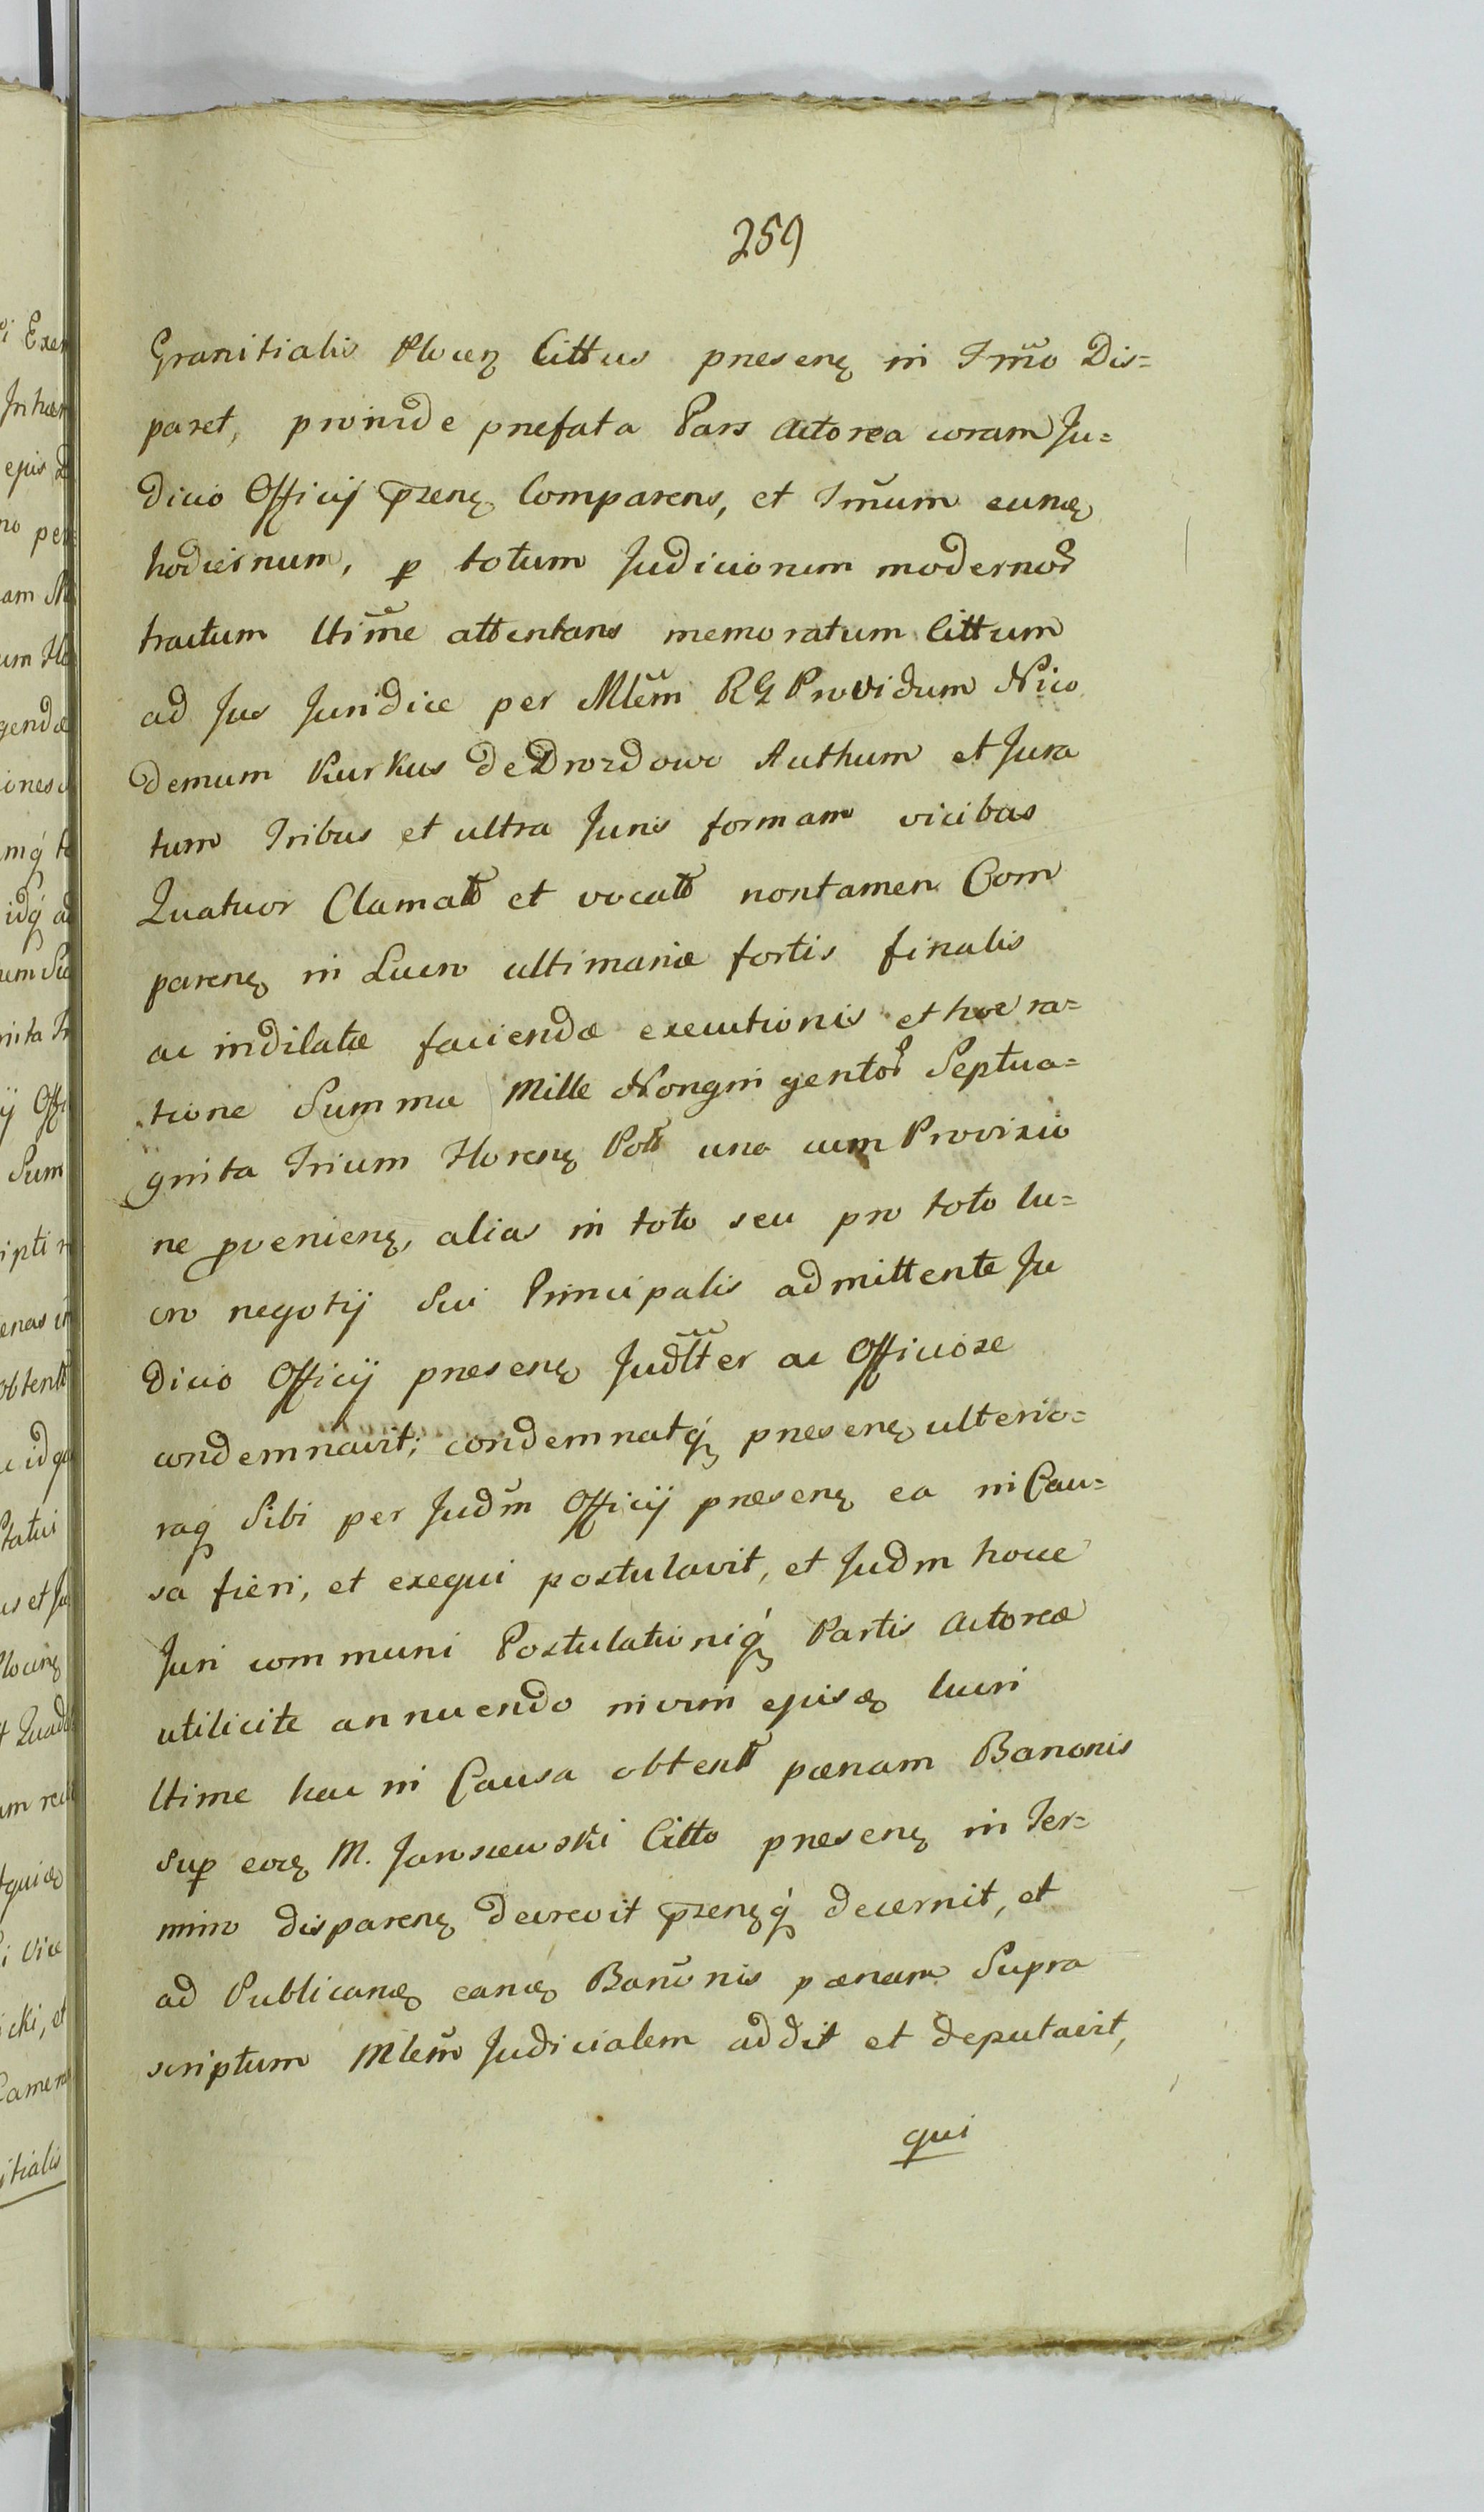 259
Granitialis Plocen̄ Cittus presenꝫ in Tm̃o Dis=
paret, proinde prefata Pars Actorea coram Ju=
dicio Officij p̄zenꝫ Comparens, et Tm̃um eunꝫ
hodiernum, ꝑ totum Judiciorum modernoꝝ
tractum ltim̃e attentans memoratum Cittum
ad Jus Juridice per Mlem̃ RG Providum Nico
demum Kurkus de Drozdowo Authum et Jura
tum Tribus et ultra Juris formam vicibus
Quatuor Clamatt et vocatt non tamen Com
parenꝫ in Lucro ultimariæ fortis finalis
ac indilatæ faciendæ executionis et hoc ra=
tione Summæ Mille Nongin gentoꝝ Septua=
ginta Trium Florenꝫ Poll una cum Provisio
ne ꝓvenienꝫ, alias in toto seu pro toto lu=
cro negotij Sui Principalis admittente Ju
dicio Officij presenꝫ Jud̃llter ac Officiose
condemnavit; condemnatq́ꝫ presenꝫ ulterio=
raqꝫ Sibi per Judm̃ Officij præsenꝫ ea in Cau=
sa fieri, et exequi postulavit, et Judm hocce
Juri communi Postulationiq́ꝫ Partis Actoreæ
utilicite annuendo in vim ejusꝫ lucri
ltime hac in Causa obtentt pœnam Banonis
Suꝑ eoꝫ M. Jarosiewski Citto presenꝫ in Ter=
mino disparenꝫ decrevit p̄zenꝫq́ decernit, et
ad Publicanꝫ eanꝫ Banonis pœnam Supra
scriptum Mlem̃ Judicialem addit et deputavit,
qui